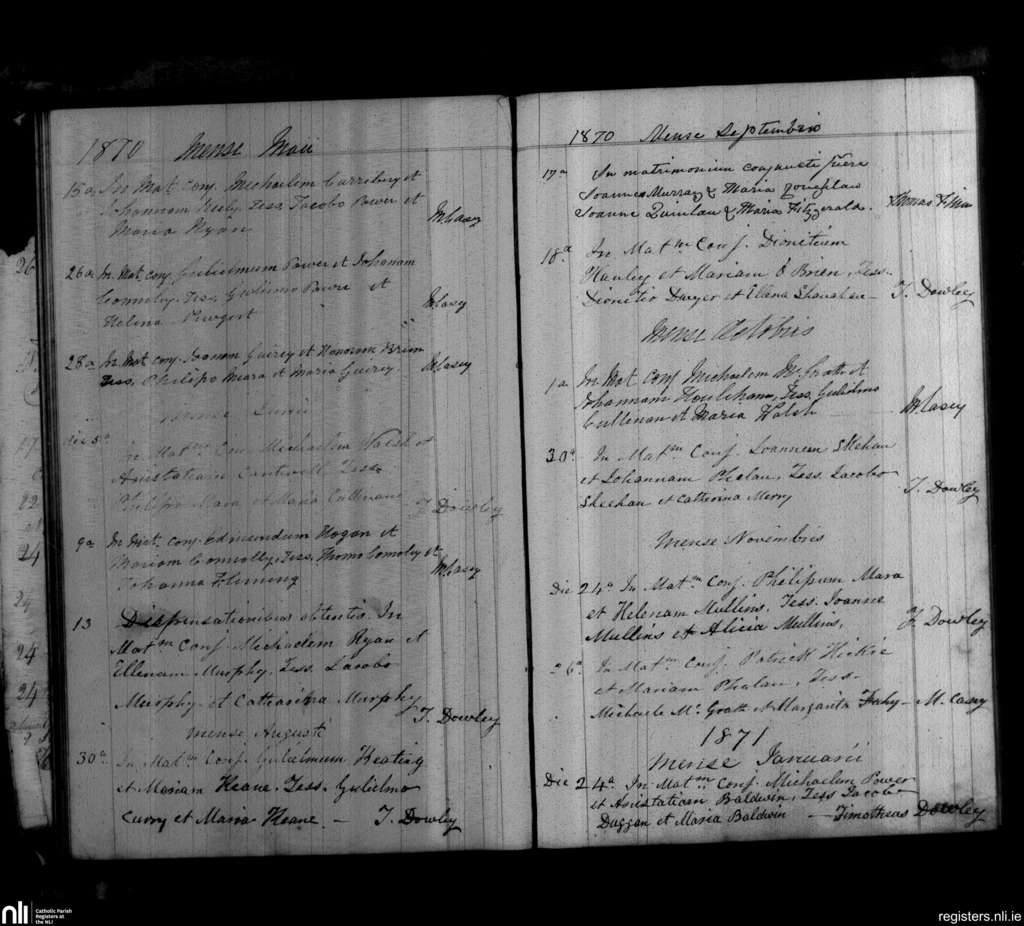 1870 Mense Maii
15a In Mat. conj. Michaelem et
Johannam Tess. Jacobo Power et
Maria Ryan
M Casey
26a In Mat. conj. Gulielmum Power et Johanam
Connoly. Tess. Gulielmo Power et
Helina
M Casey
28a In Mat conj. Joanem Guirey et Honoram Brien
Tess. Philipo Meara et Maria Guirey
M Casey
Mense Junii
Die 5a
In Matm Conj. Michaelem Walsh et
Anistatiam Cantwell Tess.
Philipo Mara et Maria Cullinane
T Dowley
9a In Mat. conj. Edmundum Hogan et
Mariam Connolly, Tess. Thoma Connoly et
Johanna Fleming
M Casey
13 Dispensationibus obtentis. In
Matm Conj. Michaelem Ryan et
Ellenam Murphy, Tess. Jacobo
Murphy et Catharina Murphy
T. Dowley
Mense Augusti
30a In Matm Conj. Gulielmum Keating
et Mariam Keane. Tess. Gulielmo
Curry et Maria Keane. — T. Dowley
1870 Mense Septembris
17a In matrimonium conjuncti fuere
Joannes Murray & Maria
Joanne Quinlan & Maria Fitzgerald.
Thomas
18a In Matm Conj. Dionitium
Hanley et Mariam O Brien, Tess.
Dionitio Dwyer et Ellena Shanahan —
T. Dowley
Mense Octobris
1a In Mat Conj Michaelem McGrath et
Johannam Houlihan, Tess. Gulielmo
Cullenan et Maria Walsh
M Casey
30a In Matm Conj. Joannem Shehan
et Johannam Phelan, Tess. Jacobo
Sheehan et Catherina Merry
T. Dowley
Mense Novembris
Die 24a In Matm Conj. Philipum Mara
et Helenam Mullins. Tess. Joanne
Mullins et Alicia Mullins.
T. Dowley
26a In Matm Conj. Patrick Hickie
et Mariam Phelan, Tess.
Michaele Mc Grath et Margarita Fahy — M. Casey
1871
Mense Januarii
Die 24a In Matm Conj. Michaelem Power
et Anistatiam Baldwin, Tess Jacobo
Duggan et Maria Baldwin — Timotheus Dowley
26
24
22
24
24
24
nli
Catholic Parish
Registers at
the NLI
registers.nli.ie